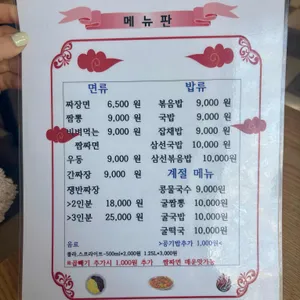 메뉴판
면류
짜장면 6,500 원
짬뽕 9,000 원
비벼먹는 9,000 원
짬짜면
우동 9,000 원
간짜장 9,000 원
쟁반짜장
>2인분 18,000 원
>3인분 25,000 원
밥류
볶음밥 9,000 원
국밥 9,000 원
잡채밥 9,000 원
삼선국밥 10,000원
삼선볶음밥 10,000원
계절 메뉴
콩물국수 9,000원
굴짬뽕 10,000원
굴국밥 10,000원
굴떡국 10,000원
>공기밥추가 1,000원<
음료
콜라.스프라이트-500ml=2,000원 1.25L=3,000원
※곱빼기 추가시 1,000원 추가 짬짜면 매운맛가능